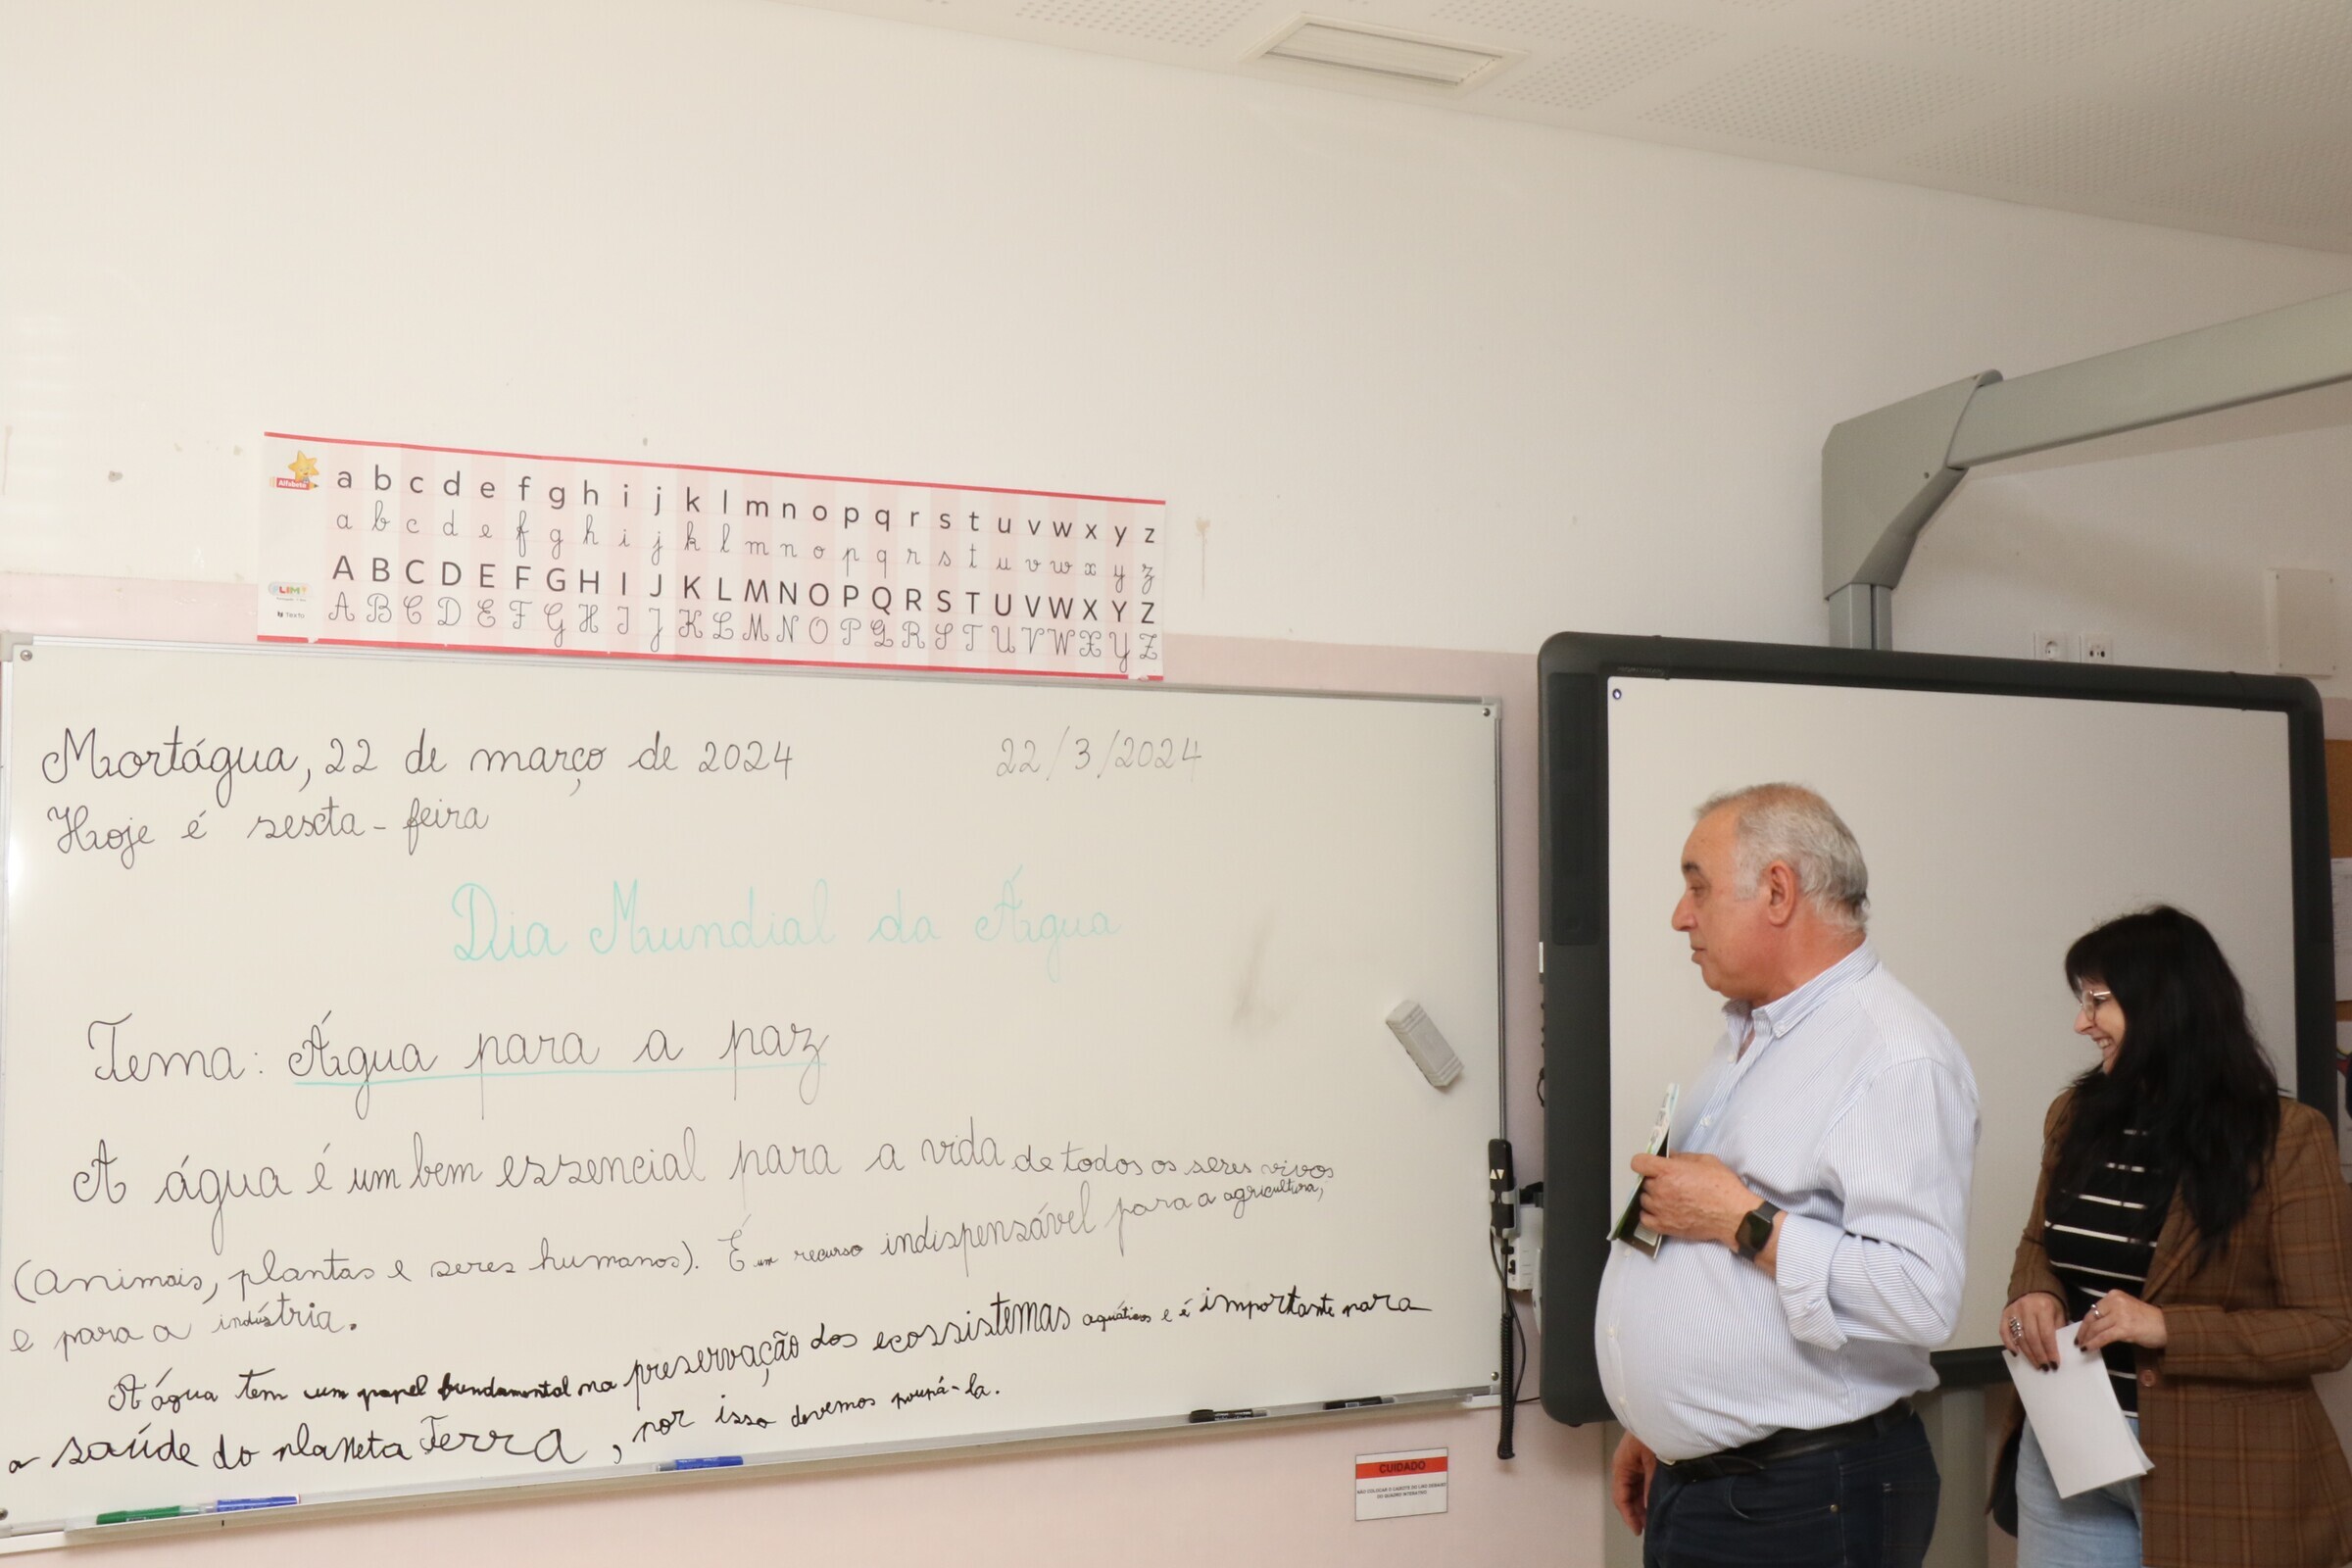 Alfabeto
a b c d e f g h i j k l m n o p q r s t u v w x y z
a b c d e f g h i j k l m n o p q r s t u v w x y z
A B C D E F G H I J K L M N O P Q R S T U V W X Y Z
A B C D E F G H I J K L M N O P Q R S T U V W X Y Z
Texto
Mortágua, 22 de março de 2024 22/3/2024
Hoje é sexta-feira
Dia Mundial da Água
Tema: Água para a paz
A água é um bem essencial para a vida de todos os seres vivos
(animais, plantas e seres humanos). É um recurso indispensável para a agricultura,
e para a indústria.
A água tem um papel fundamental na preservação dos ecossistemas aquáticos e é importante para
a saúde do planeta Terra, por isso devemos poupá-la.
CUIDADO